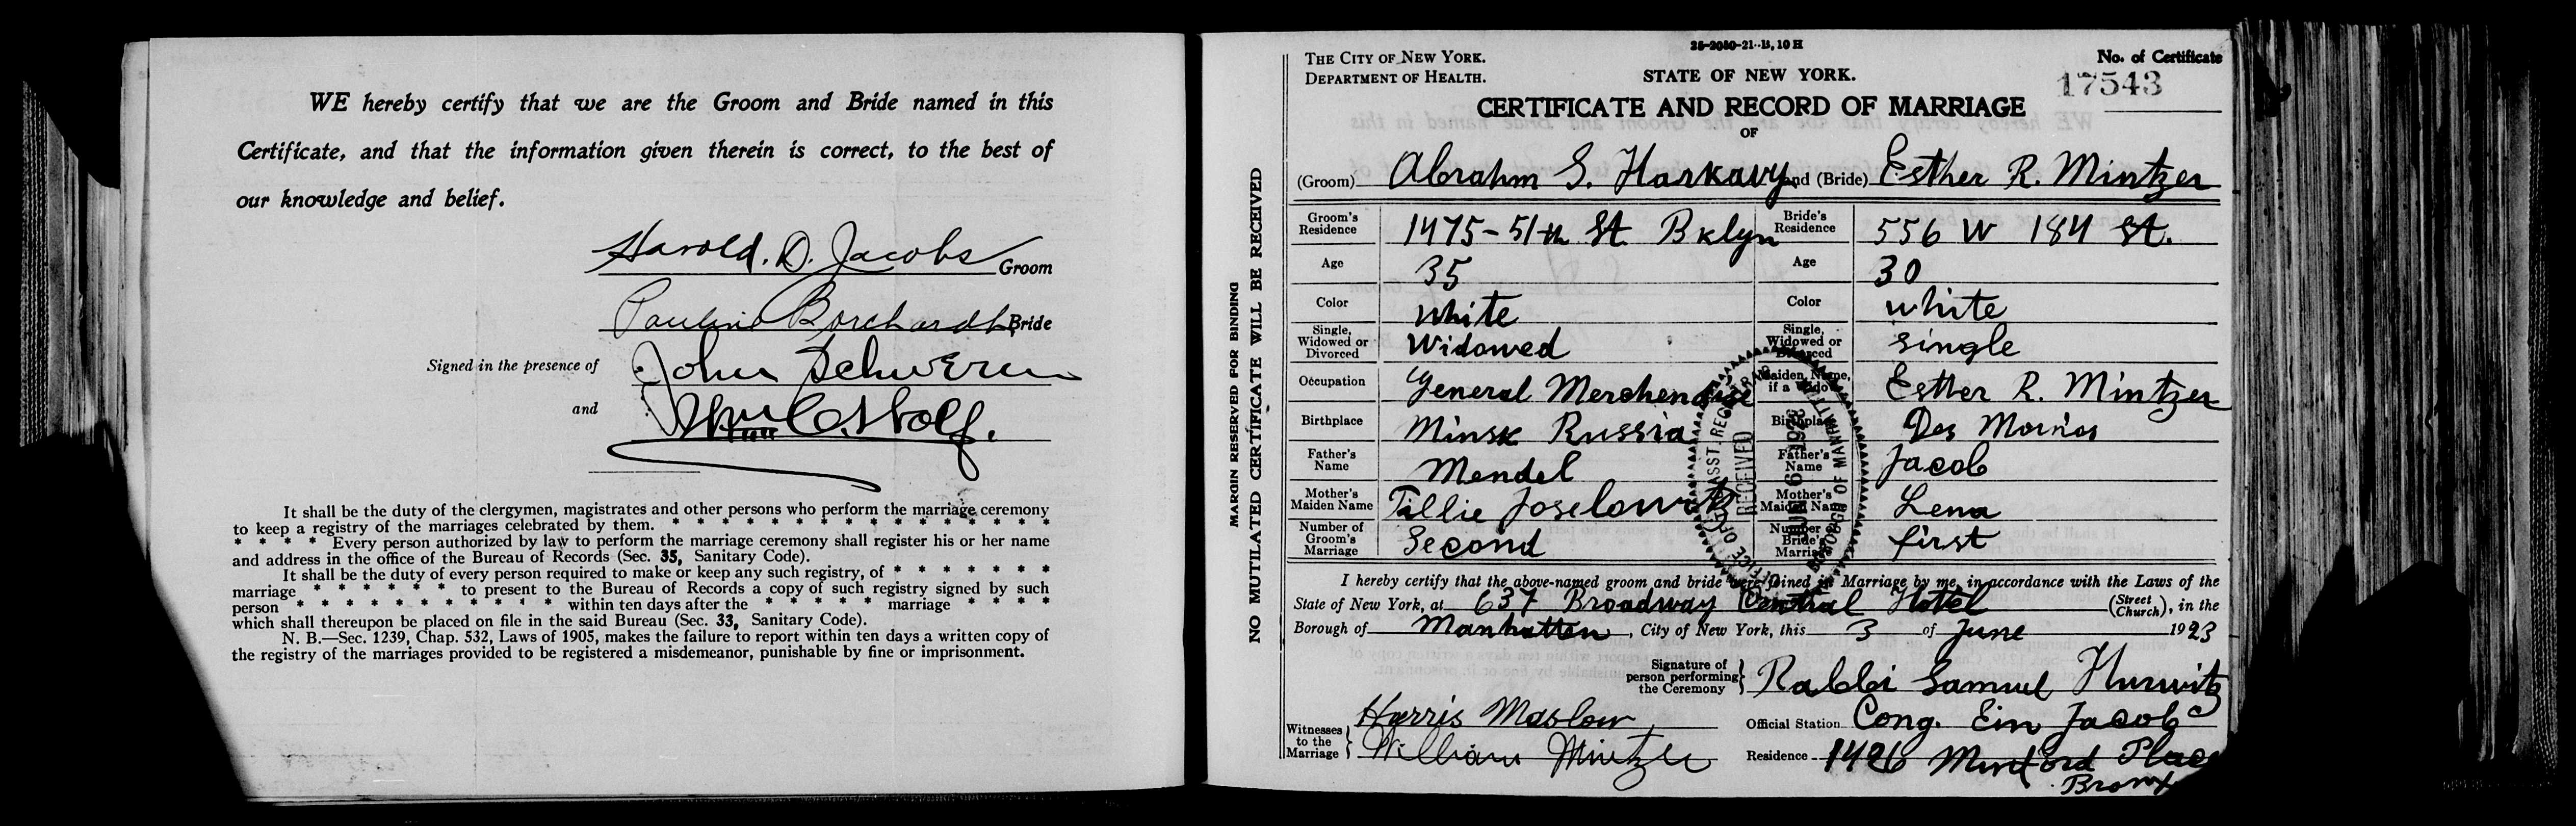 WE hereby certify that we are the Groom and Bride named in this
Certificate, and that the information given therein is correct, to the best of
our knowledge and belief.
Harold. D. Jacobs Groom
Pauline Borchardt Bride
Signed in the presence of John Schwerin
and Wm C. Wolf.
It shall be the duty of the clergymen, magistrates and other persons who perform the marriage ceremony
to keep a registry of the marriages celebrated by them. * * * * * * * * * * * * * *
* * * * Every person authorized by law to perform the marriage ceremony shall register his or her name
and address in the office of the Bureau of Records (Sec. 35, Sanitary Code).
It shall be the duty of every person required to make or keep any such registry, of * * * * * * *
marriage * * * * * * * to present to the Bureau of Records a copy of such registry signed by such
person * * * * * * * * * * * * within ten days after the * * * * * marriage * * * *
which shall thereupon be placed on file in the said Bureau (Sec. 33, Sanitary Code).
N. B.—Sec. 1239, Chap. 532, Laws of 1905, makes the failure to report within ten days a written copy of
the registry of the marriages provided to be registered a misdemeanor, punishable by fine or imprisonment.
MARGIN RESERVED FOR BINDING
NO MUTILATED CERTIFICATE WILL BE RECEIVED
25-2050-21-B, 10 H
THE CITY OF NEW YORK.
DEPARTMENT OF HEALTH.
STATE OF NEW YORK.
No. of Certificate
17543
CERTIFICATE AND RECORD OF MARRIAGE
OF
(Groom) Abrahm S. Harkavy and (Bride) Esther R. Mintzer
Groom's Residence 1475-51th St. Bklyn Bride's Residence 556 W 184 St.
Age 35 Age 30
Color White Color white
Single, Widowed or Divorced Widowed Single, Widowed or Divorced single
Occupation General Merchendise Maiden Name, if a Widow Esther R. Mintzer
Birthplace Minsk Russia Birthplace Des Moines
Father's Name Mendel Father's Name Jacob
Mother's Maiden Name Tillie Joselowitz Mother's Maiden Name Lena
Number of Groom's Marriage Second Number of Bride's Marriage first
OFFICE OF ASST. REGISTRAR
RECEIVED
JUN 6 1923
BOROUGH OF MANHATTAN
I hereby certify that the above-named groom and bride were joined in Marriage by me, in accordance with the Laws of the
State of New York, at 637 Broadway Central Hotel (Street Church), in the
Borough of Manhatten, City of New York, this 3 of June 1923
Signature of person performing the Ceremony } Rabbi Samuel Hurwitz
Witnesses to the Marriage } Harris Maslow Official Station Cong. Ein Jacob
William Mintzer Residence 1426 Minford Place
Bronx